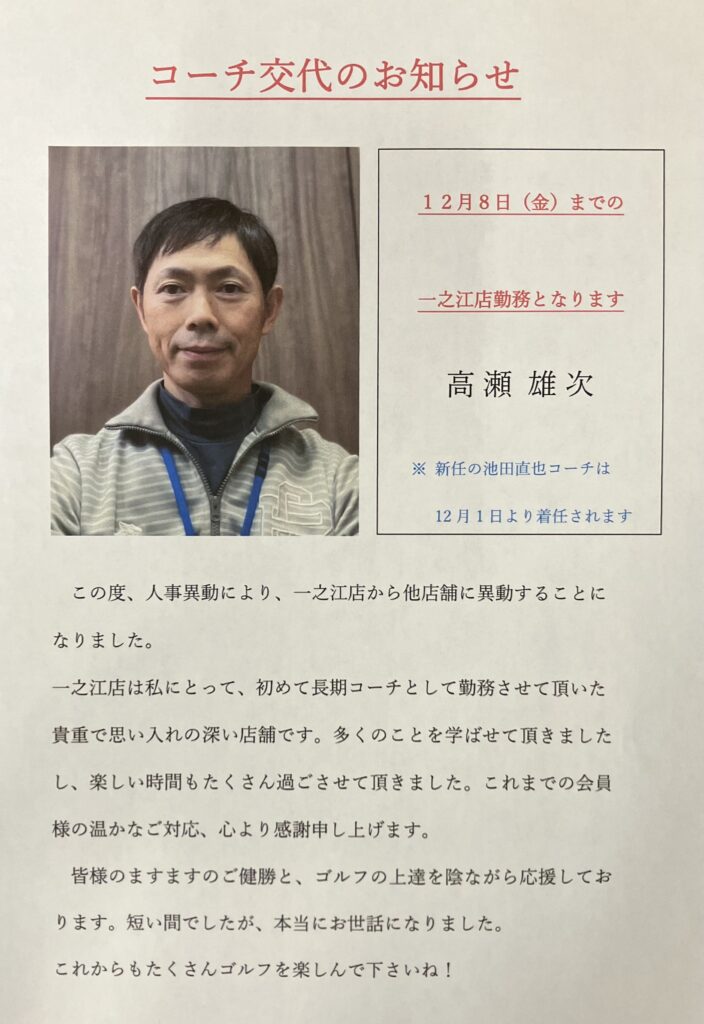 コーチ交代のお知らせ
１２月８日（金）までの
一之江店勤務となります
高瀬 雄次
※ 新任の池田直也コーチは
12月１日より着任されます
この度、人事異動により、一之江店から他店舗に異動することに
なりました。
一之江店は私にとって、初めて長期コーチとして勤務させて頂いた
貴重で思い入れの深い店舗です。多くのことを学ばせて頂きました
し、楽しい時間もたくさん過ごさせて頂きました。これまでの会員
様の温かなご対応、心より感謝申し上げます。
皆様のますますのご健勝と、ゴルフの上達を陰ながら応援してお
ります。短い間でしたが、本当にお世話になりました。
これからもたくさんゴルフを楽しんで下さいね！